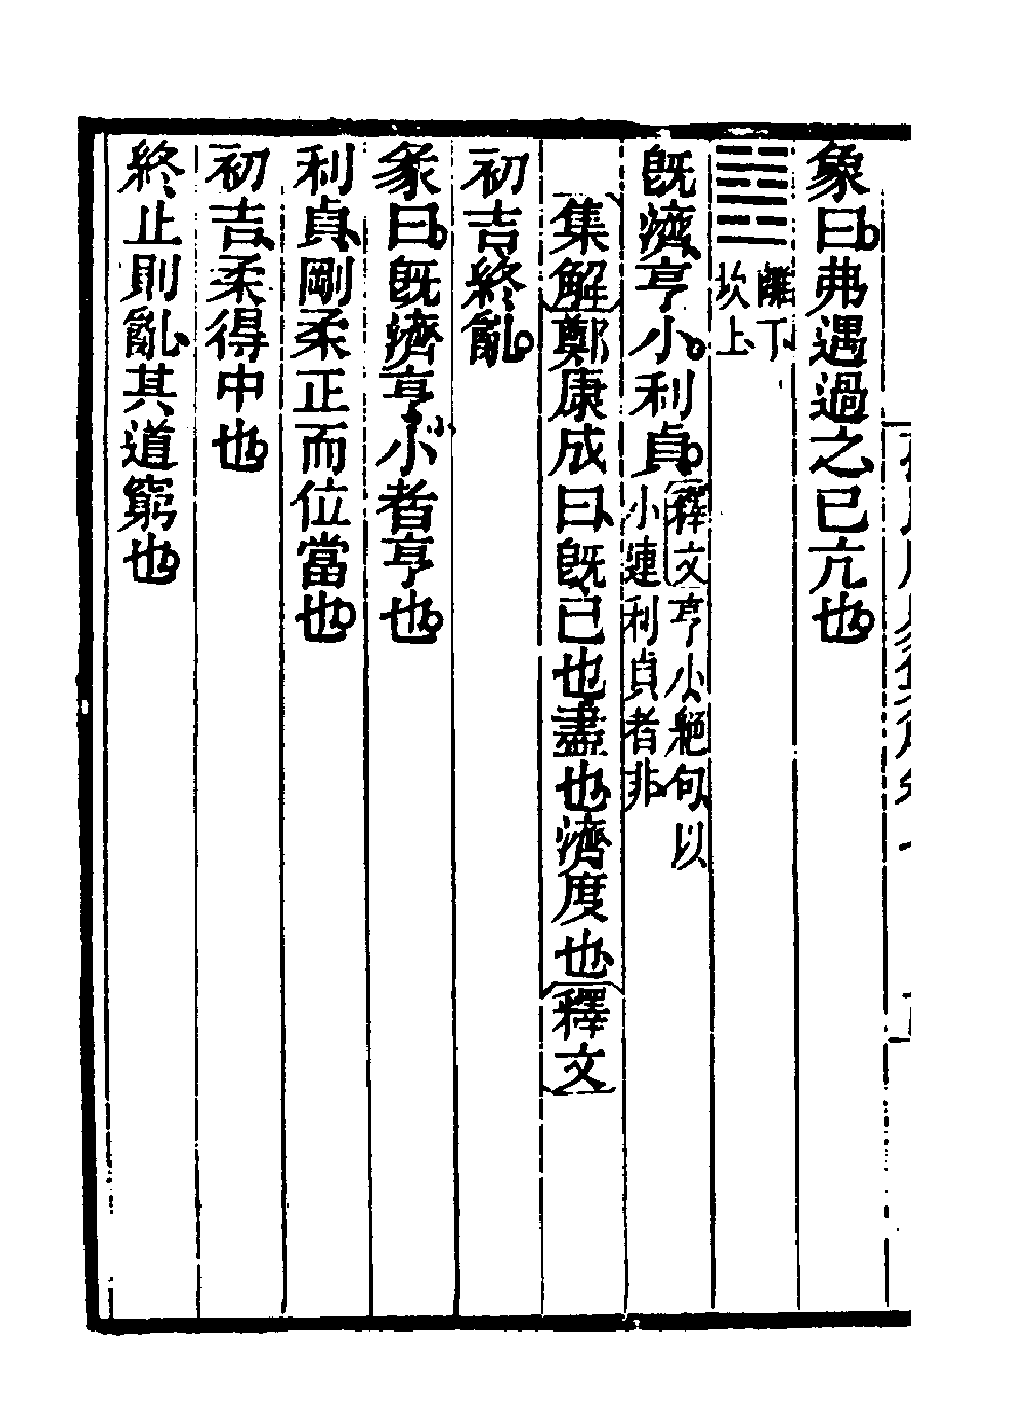 象曰。弗遇過之已亢也。
䷾離下
坎上
旣濟、亨小。利貞。
〔釋文〕亨小絕句、以
小連利貞者非
〔集解〕鄭康成曰、旣已也盡也、濟度也、〔釋文〕
初吉、終亂。
彖曰。旣濟亨、小小者亨也。
利貞、剛柔正而位當也。
初吉、柔得中也。
終止則亂、其道窮也。